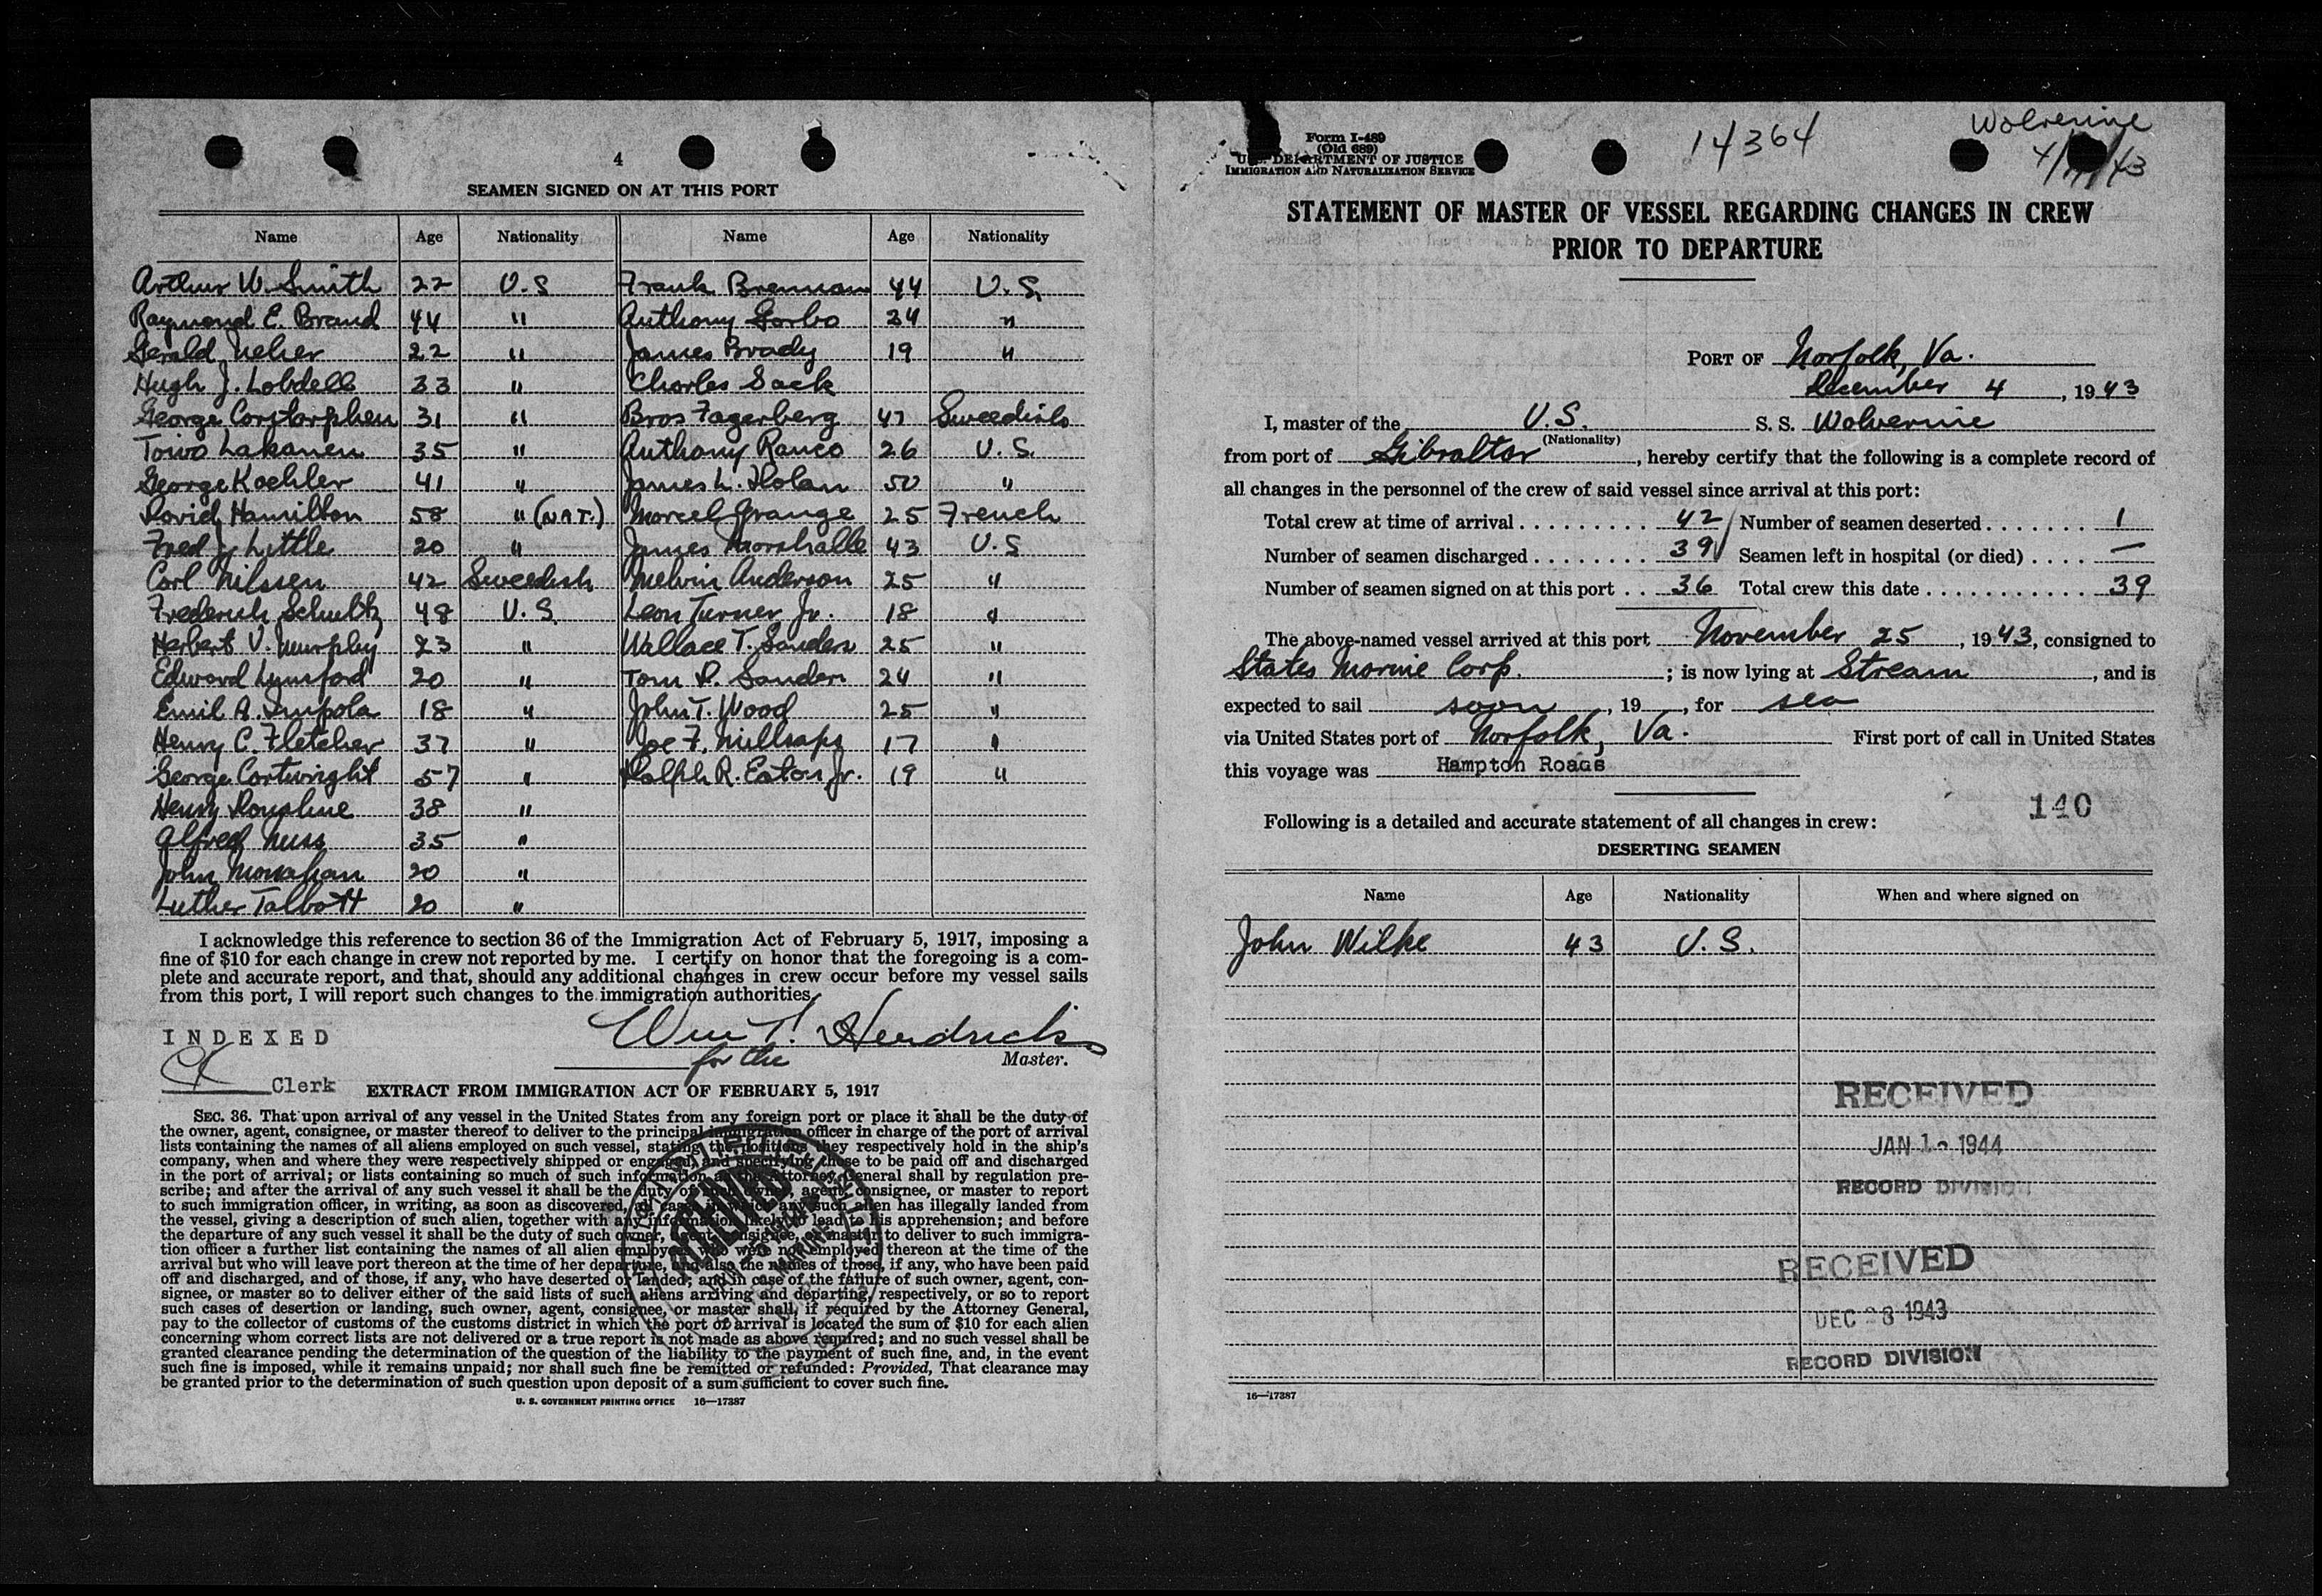 4
SEAMEN SIGNED ON AT THIS PORT
Name Age Nationality Name Age Nationality
Arthur W. Smith 22 U.S Frank Brennan 44 U.S.
Raymond E. Brand 44 " Anthony Gorbo 24 "
Gerald Neher 22 " James Brady 19 "
Hugh J. Lobdell 33 " Charles Sack
George Corstorphen 31 " Bros Fagerberg 47 Sweedish
Toivo Lakanen 35 " Anthony Ranco 26 U.S.
George Koehler 41 " James L. Holan 50 "
David Hamilton 58 " (NAT.) Marcel Grange 25 French
Fred J. Little 20 " James Marshalle 43 U.S
Carl Nilssen 42 Sweedish Melvin Anderson 25 "
Frederick Schultz 48 U.S. Leon Turner Jr. 18 "
Herbert V. Murphy 23 " Wallace T. Sanders 25 "
Edward Lynsford 20 " Tom P. Sanders 24 "
Emil A. Impola 18 " John T. Wood 25 "
Henry C. Fletcher 37 " Joe F. Millsaps 17 "
George Cortwright 57 " Ralph R. Eaton Jr. 19 "
Henry 38 "
Alfred Nuss 35 "
John Monahan 20 "
Luther Talbott 20 "
I acknowledge this reference to section 36 of the Immigration Act of February 5, 1917, imposing a
fine of $10 for each change in crew not reported by me. I certify on honor that the foregoing is a com-
plete and accurate report, and that, should any additional changes in crew occur before my vessel sails
from this port, I will report such changes to the immigration authorities.
INDEXED
Wm T. Hendricks
for the Master.
Clerk
EXTRACT FROM IMMIGRATION ACT OF FEBRUARY 5, 1917
SEC. 36. That upon arrival of any vessel in the United States from any foreign port or place it shall be the duty of
the owner, agent, consignee, or master thereof to deliver to the principal immigration officer in charge of the port of arrival
lists containing the names of all aliens employed on such vessel, stating the positions they respectively hold in the ship's
company, when and where they were respectively shipped or engaged, and specifying those to be paid off and discharged
in the port of arrival; or lists containing so much of such information as the Attorney General shall by regulation pre-
scribe; and after the arrival of any such vessel it shall be the duty of such owner, agent, consignee, or master to report
to such immigration officer, in writing, as soon as discovered, all cases in which any such alien has illegally landed from
the vessel, giving a description of such alien, together with any information likely to lead to his apprehension; and before
the departure of any such vessel it shall be the duty of such owner, agent, consignee, or master to deliver to such immigra-
tion officer a further list containing the names of all alien employees who were not employed thereon at the time of the
arrival but who will leave port thereon at the time of her departure, and also the names of those, if any, who have been paid
off and discharged, and of those, if any, who have deserted or landed; and in case of the failure of such owner, agent, con-
signee, or master so to deliver either of the said lists of such aliens arriving and departing, respectively, or so to report
such cases of desertion or landing, such owner, agent, consignee, or master shall, if required by the Attorney General,
pay to the collector of customs of the customs district in which the port of arrival is located the sum of $10 for each alien
concerning whom correct lists are not delivered or a true report is not made as above required; and no such vessel shall be
granted clearance pending the determination of the question of the liability to the payment of such fine, and, in the event
such fine is imposed, while it remains unpaid; nor shall such fine be remitted or refunded: Provided, That clearance may
be granted prior to the determination of such question upon deposit of a sum sufficient to cover such fine.
U. S. GOVERNMENT PRINTING OFFICE 16—17387
Form I-489
(Old 689)
U.S. DEPARTMENT OF JUSTICE
IMMIGRATION AND NATURALIZATION SERVICE
14364
Wolverine
STATEMENT OF MASTER OF VESSEL REGARDING CHANGES IN CREW
PRIOR TO DEPARTURE
PORT OF Norfolk, Va.
December 4, 1943
I, master of the U.S. S. S. Wolverine
(Nationality)
from port of Gibraltar, hereby certify that the following is a complete record of
all changes in the personnel of the crew of said vessel since arrival at this port:
Total crew at time of arrival 42 Number of seamen deserted 1
Number of seamen discharged 39 Seamen left in hospital (or died) —
Number of seamen signed on at this port 36 Total crew this date 39
The above-named vessel arrived at this port November 25, 1943, consigned to
States Marine Corp.; is now lying at Stream, and is
expected to sail soon, 19, for sea
via United States port of Norfolk, Va. First port of call in United States
this voyage was Hampton Roads
140
Following is a detailed and accurate statement of all changes in crew:
DESERTING SEAMEN
Name Age Nationality When and where signed on
John Wilke 43 U.S.
RECEIVED
JAN 1944
RECORD DIVISION
RECEIVED
DEC 28 1943
RECORD DIVISION
16—17387